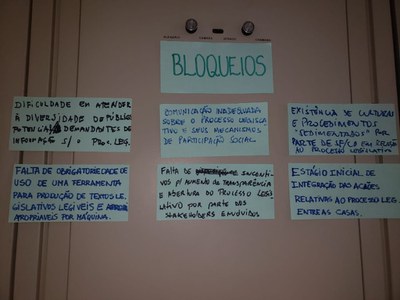 BLOQUEIOS
DIFICULDADE EM ATENDER
À DIVERSIDADE DE PÚBLICO
DEMANDANTES DE
S/ O PROC. LEG.
COMUNICAÇÃO INADEQUADA
SOBRE O PROCESSO LEGISLA
TIVO E SEUS MECANISMOS
DE PARTICIPAÇÃO SOCIAL
EXISTÊNCIA DE CULTURA
E PROCEDIMENTOS
"SEDIMENTADOS" POR
PARTE DE SF/CD EM RELAÇÃO
AO PROCESSO LEGISLATIVO
FALTA DE OBRIGATORIEDADE DE
USO DE UMA FERRAMENTA
PARA PRODUÇÃO DE TEXTOS LE
GISLATIVOS LEGÍVEIS E
APROPRIÁVEIS POR MÁQUINA.
FALTA DE INCENTI-
VOS P/ AUMENTO DA TRANSPARÊNCIA
E ABERTURA DO PROCESSO LEGIS
LATIVO POR PARTE DOS
STAKEHOLDERS ENVOLVIDOS
ESTÁGIO INICIAL DE
INTEGRAÇÃO DAS AÇÕES
RELATIVAS AO PROCESSO LEG.
ENTRE AS CASAS.